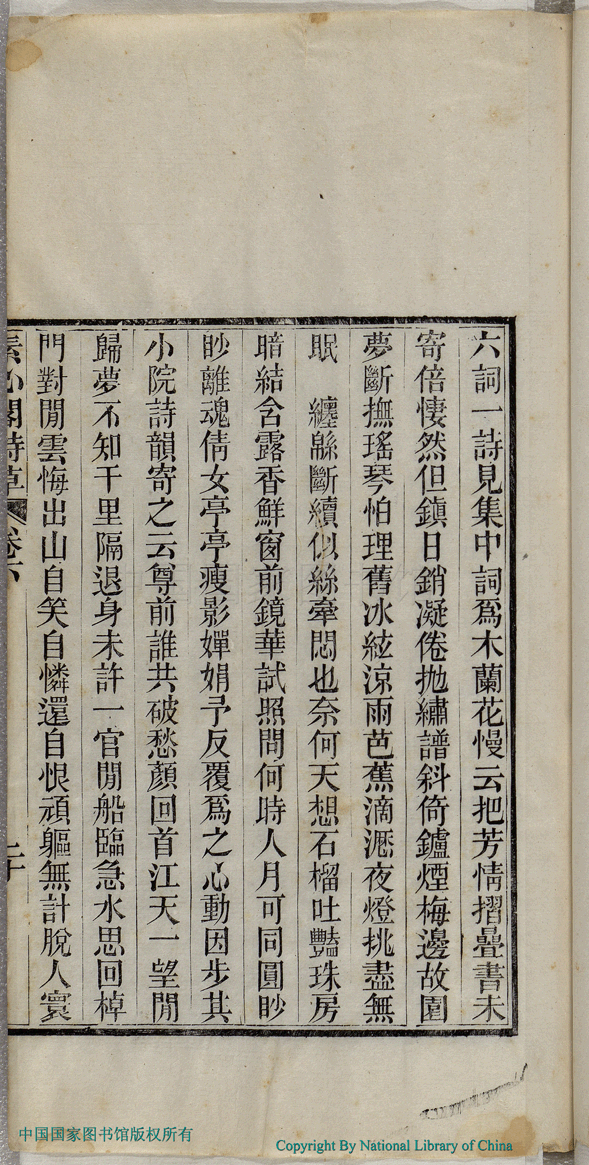 六詞一詩見集中詞爲木蘭花慢云把芳情摺疊書未
寄倍悽然但鎮日銷凝倦抛繡譜斜倚鑪煙梅邊故園
夢斷撫瑤琴怕理舊冰絃涼雨芭蕉滴瀝夜燈挑盡無
眠　纏緜斷續似絲牽悶也奈何天想石榴吐豔珠房
暗結含露香鮮窗前鏡華試照問何時人月可同圓眇
眇離魂倩女亭亭瘦影嬋娟予反覆爲之心動因步其
小院詩韻寄之云尊前誰共破愁顏回首江天一望閒
歸夢不知千里隔退身未許一官閒船臨急水思回棹
門對閒雲悔出山自笑自憐還自恨頑軀無計脫人寰
素心閣詩草 卷六 二十
中国国家图书馆版权所有
Copyright By National Library of China